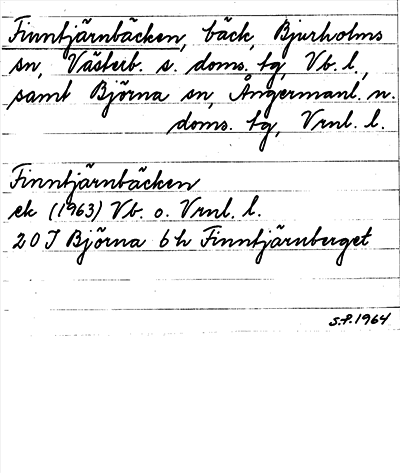 Finntjärnbäcken, bäck, Bjurholms
sn, Västerb. s. doms. tg, Vb. l.,
samt Björna sn, Ångermanl. n.
doms. tg, Vrnl. l.
Finntjärnbäcken
ek (1963) Vb. o. Vrnl. l.
20 J Björna 6 h Finntjärnberget
S.P. 1964